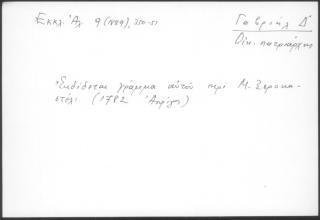 Εκκλ. Αλ. 9 (1889), 350-51
Γαβριήλ Δ΄
Οἰκ. πατριάρχης
Ἐκδίδεται γράμμα αὐτοῦ περὶ Μ. Ξηροκα-
στέλ. (1782 Ἀπρίλ.)